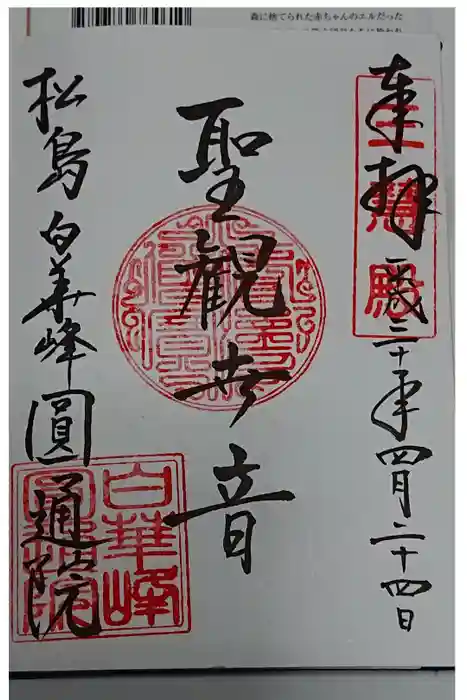 森に捨てられた赤ちゃんのエルだった
奉拝 平成三十年四月二十四日
三慧殿
聖観世音
松島 白華峰圓通院
白華峰
圓通院